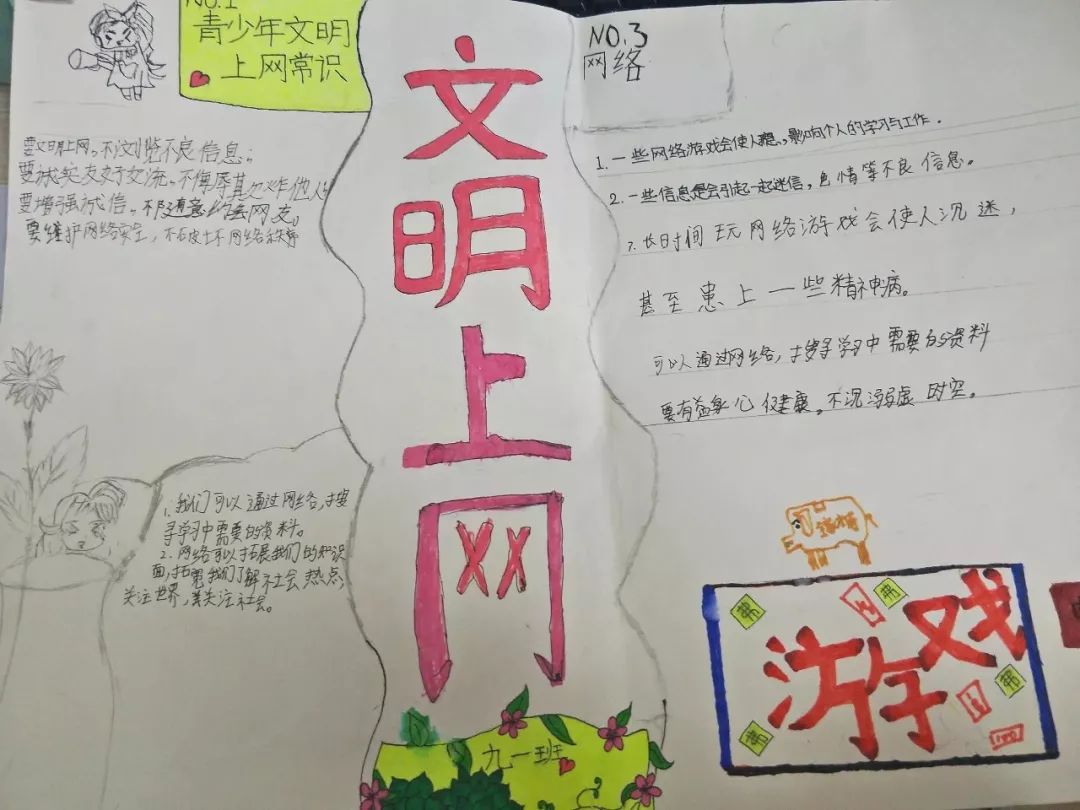 NO.1
青少年文明
上网常识
要文明上网,不浏览不良信息;
要诚实友好交流,不侮辱欺诈他人
要增强诚信,不随意约会网友。
要维护网络安全,不破坏网络秩序
1.我们可以通过网络,搜
寻学习中需要的资料。
2.网络可以拓展我们的知识
面,拓宽我们了解社会热点,
关注世界,关注社会。
文明上网
九一班
NO.3
网络
1.一些网络游戏会使人瘾,影响个人的学习与工作.
2.一些信息是会引起一起迷信,色情等不良信息。
7.长时间玩网络游戏会使人沉迷,
甚至患上一些精神病。
可以通过网络,搜寻学习中需要的资料
要有益身心健康,不沉溺虚时空。
游戏